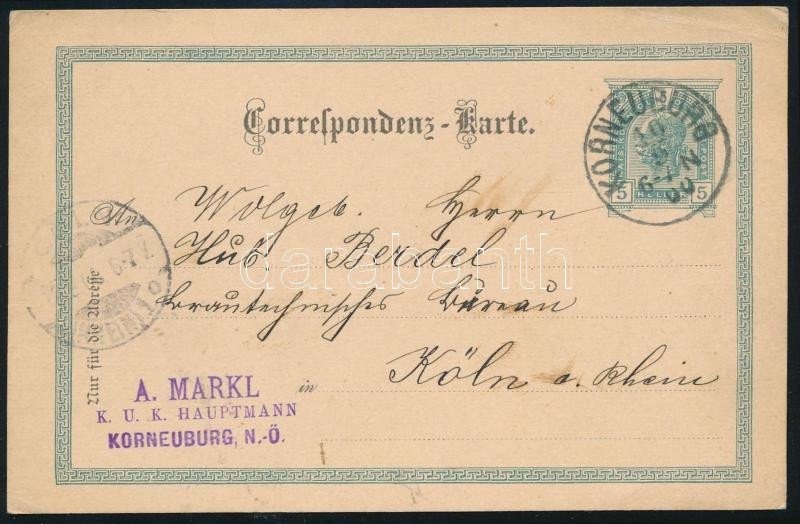 Correspondenz-Karte.
KORNEUBURG
10
6-7 N
00
5 HELLER 5
An Wolgeb. Herrn
Hub. Berdel
brautechnisches Bureau
in Köln a. Rhein
Nur für die Adresse
6-7
A. MARKL
K. U. K. HAUPTMANN
KORNEUBURG, N.-Ö.
darabanth